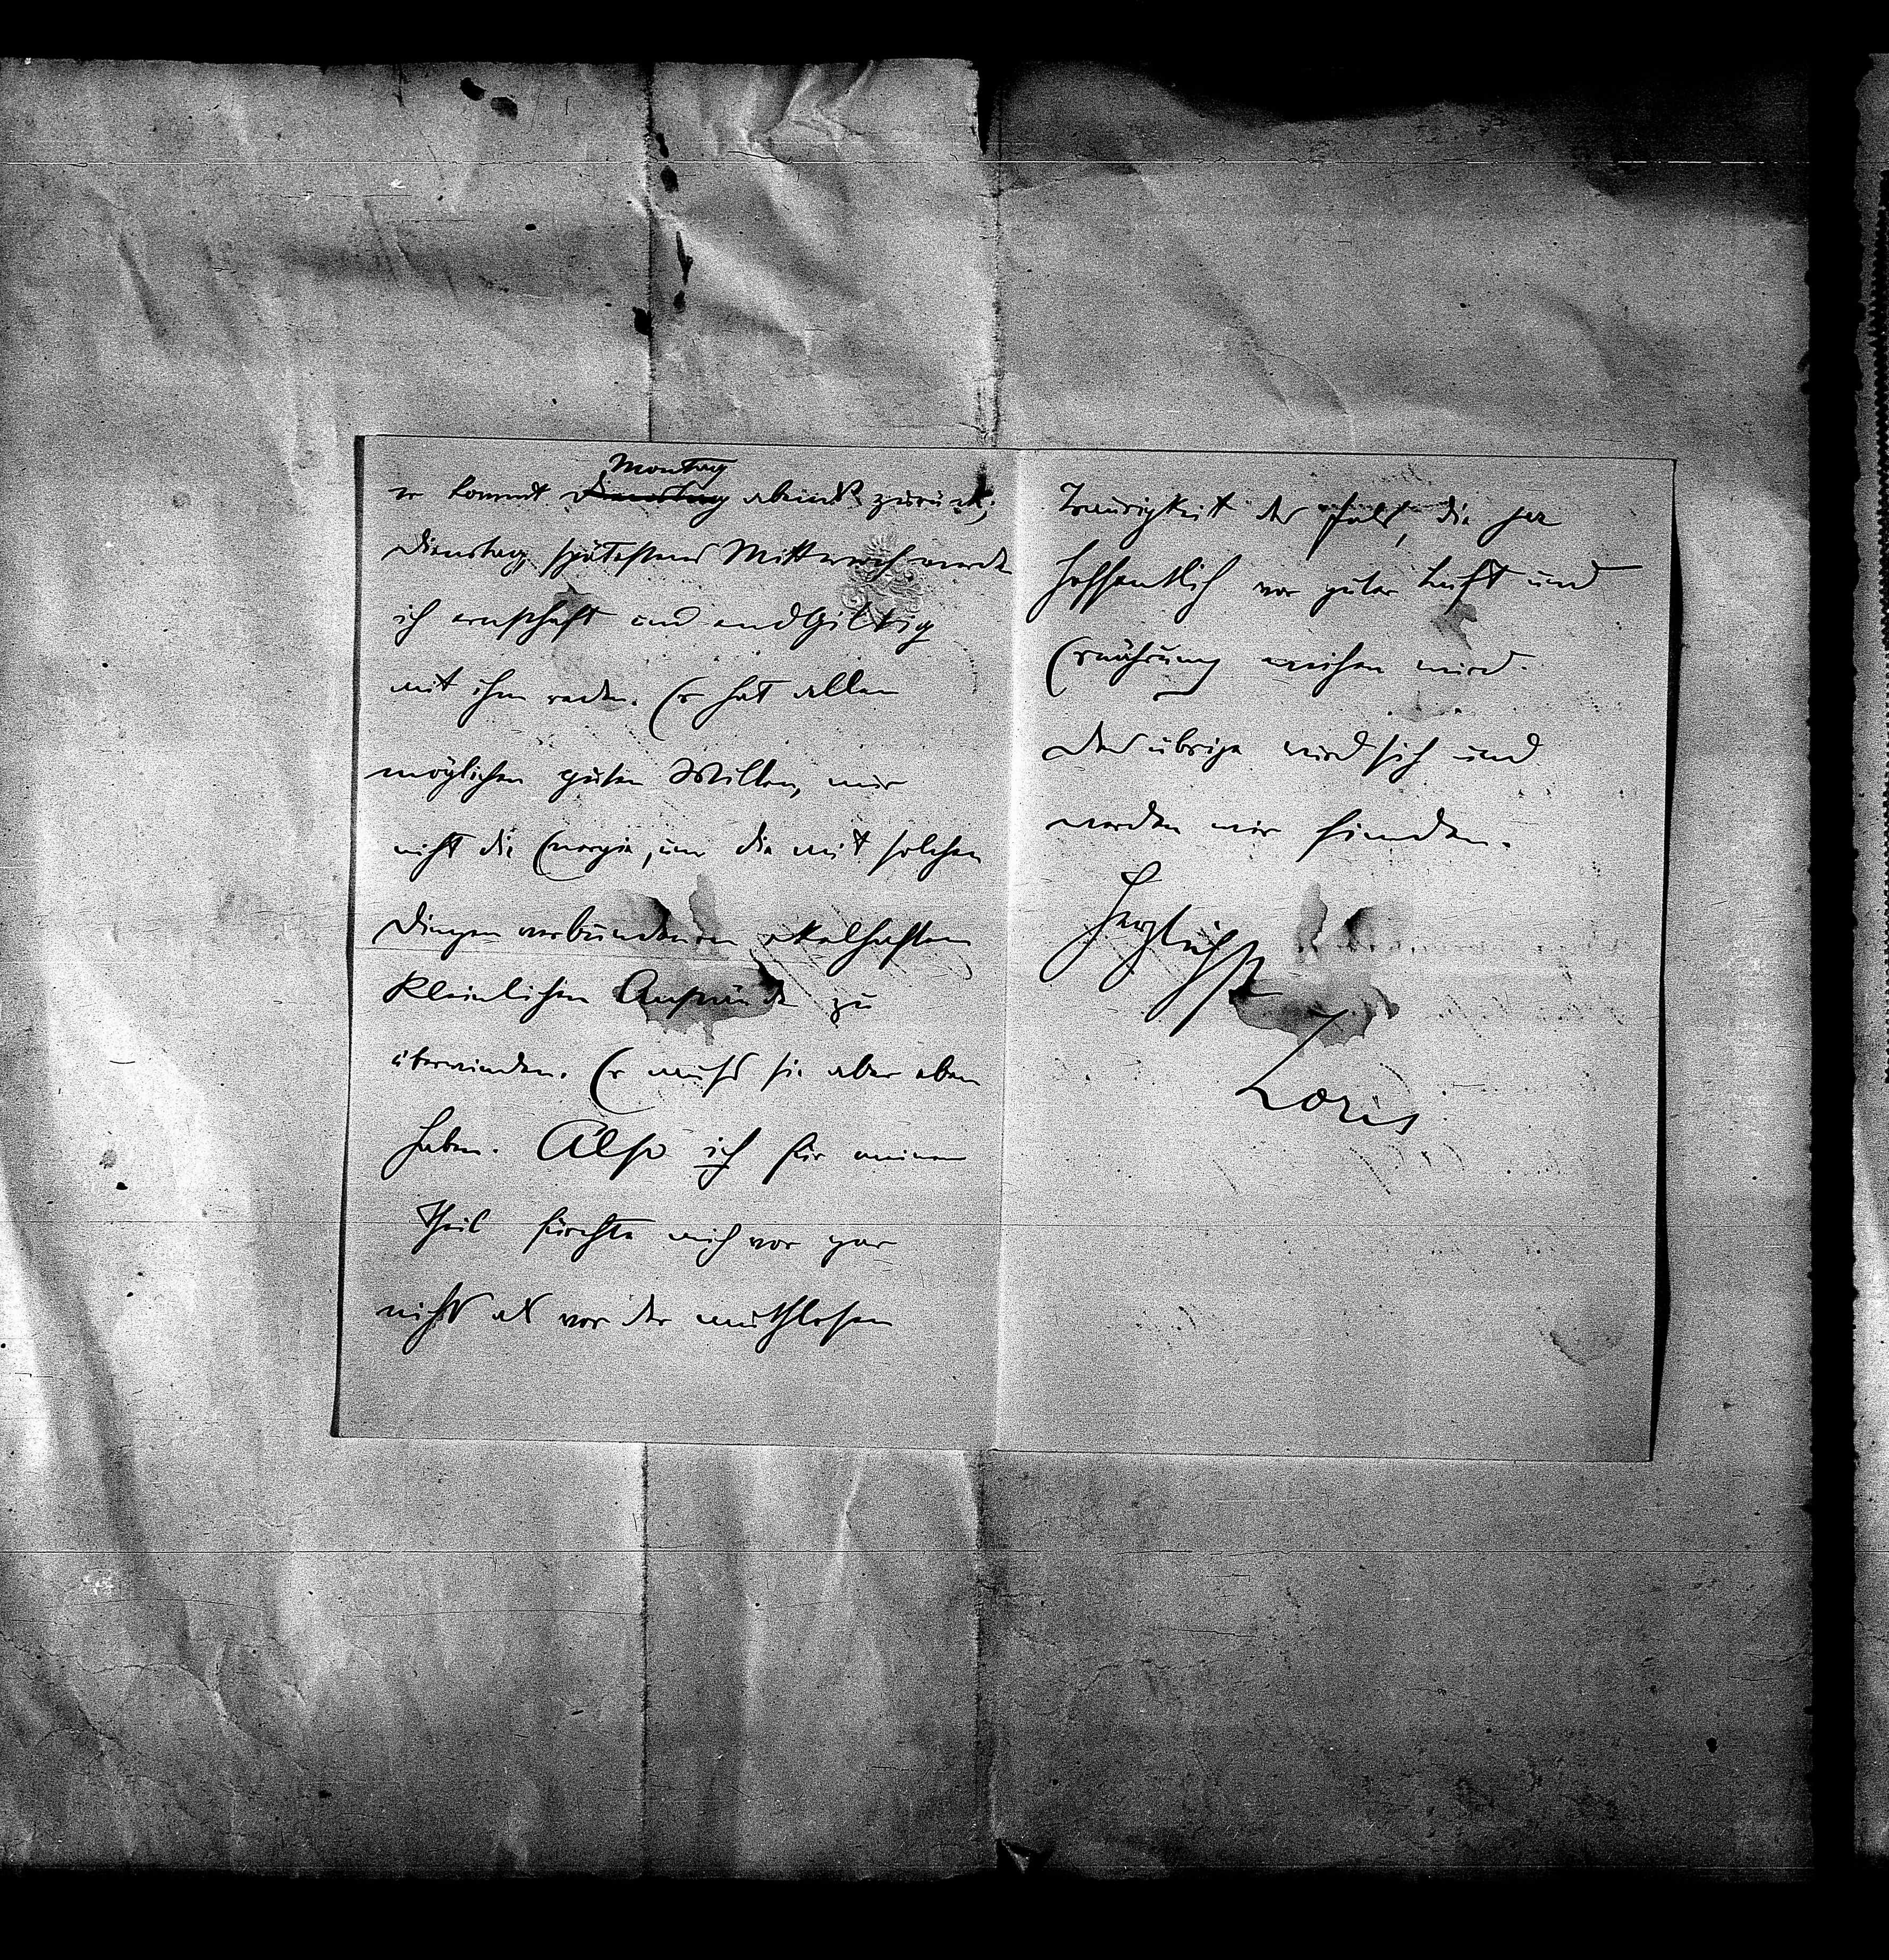 Montag
er kommt Dienstag abends zurück;
Dienstag spätestens Mittwoch werde
ich ernsthaft und endgiltig
mit ihm reden. Er hat allen
möglichen guten Willen, nur
nicht die Energie, um die mit solchen
Dingen verbundenen ekelhaften
kleinlichen Anstände zu
überwinden. Er muſs sie aber eben
haben. Also ich für meinen
Theil fürchte mich vor gar
nichts als vor der muthlosen
Traurigkeit des die ja
hoffentlich vor guter Luft und
Ernährung weichen wird.
Das übrige wird sich und
werden wir finden.
Herzlichst
Loris